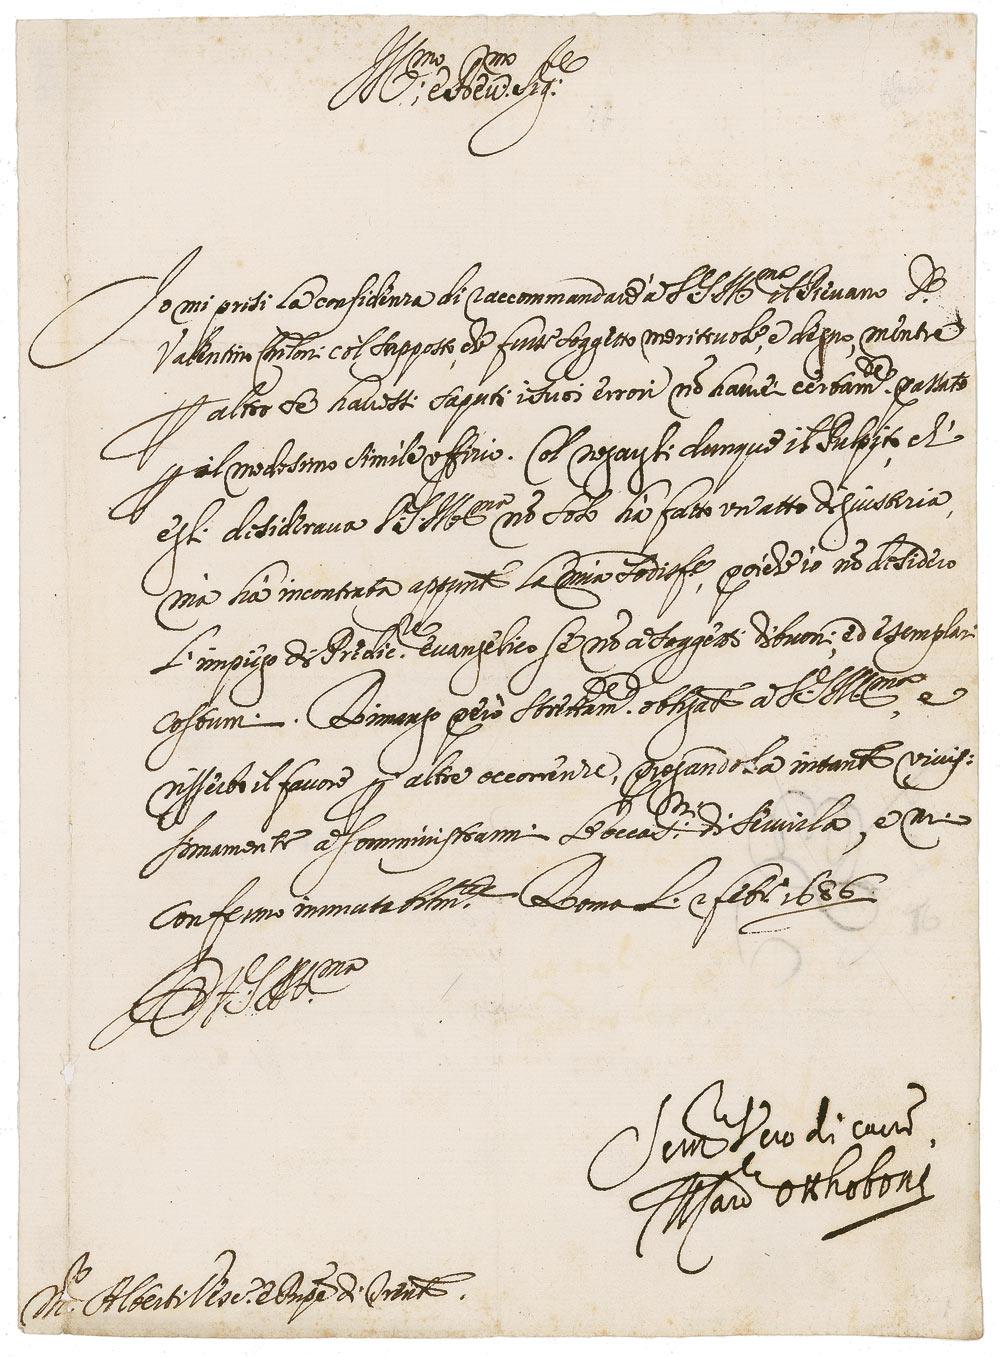 Ill.mo e Rev.mo Sig.re
Io mi presi la confidenza di raccommandare à V.S. Ill.ma il Pievano D.
Valentino col supposto, che fusse soggetto meritevole, e degno, mentre
p altro se havessi saputi i suoi errori nõ haurei certam.te passato
p il medesimo simile offizio. Col negargli dunque il Pulpito, ch'
egli desiderava V.S. Ill.ma nõ solo hà fatto un'atto di giustizia,
mà hà incontrata appunto la mia sodisfne, poiche io nõ desidero
l'impiego di Predic.re Evangelico se nõ à soggetti di buoni, ed esemplari
costumi. Rimango però strettam.te obligato a V.S. Ill.ma, e
risserbo il favore p altre occorrenze, pregandola intanto vivis:
simamente a somministrarmi l'occas.ni di servirla, e mi
confermo immutabilm.te Roma li 2 febr. 1686
D V.S. Ill.ma
Serv.re Vero di cuore
Card.le Otthoboni
Alberti Vesc.o e Prnpe di Trento.